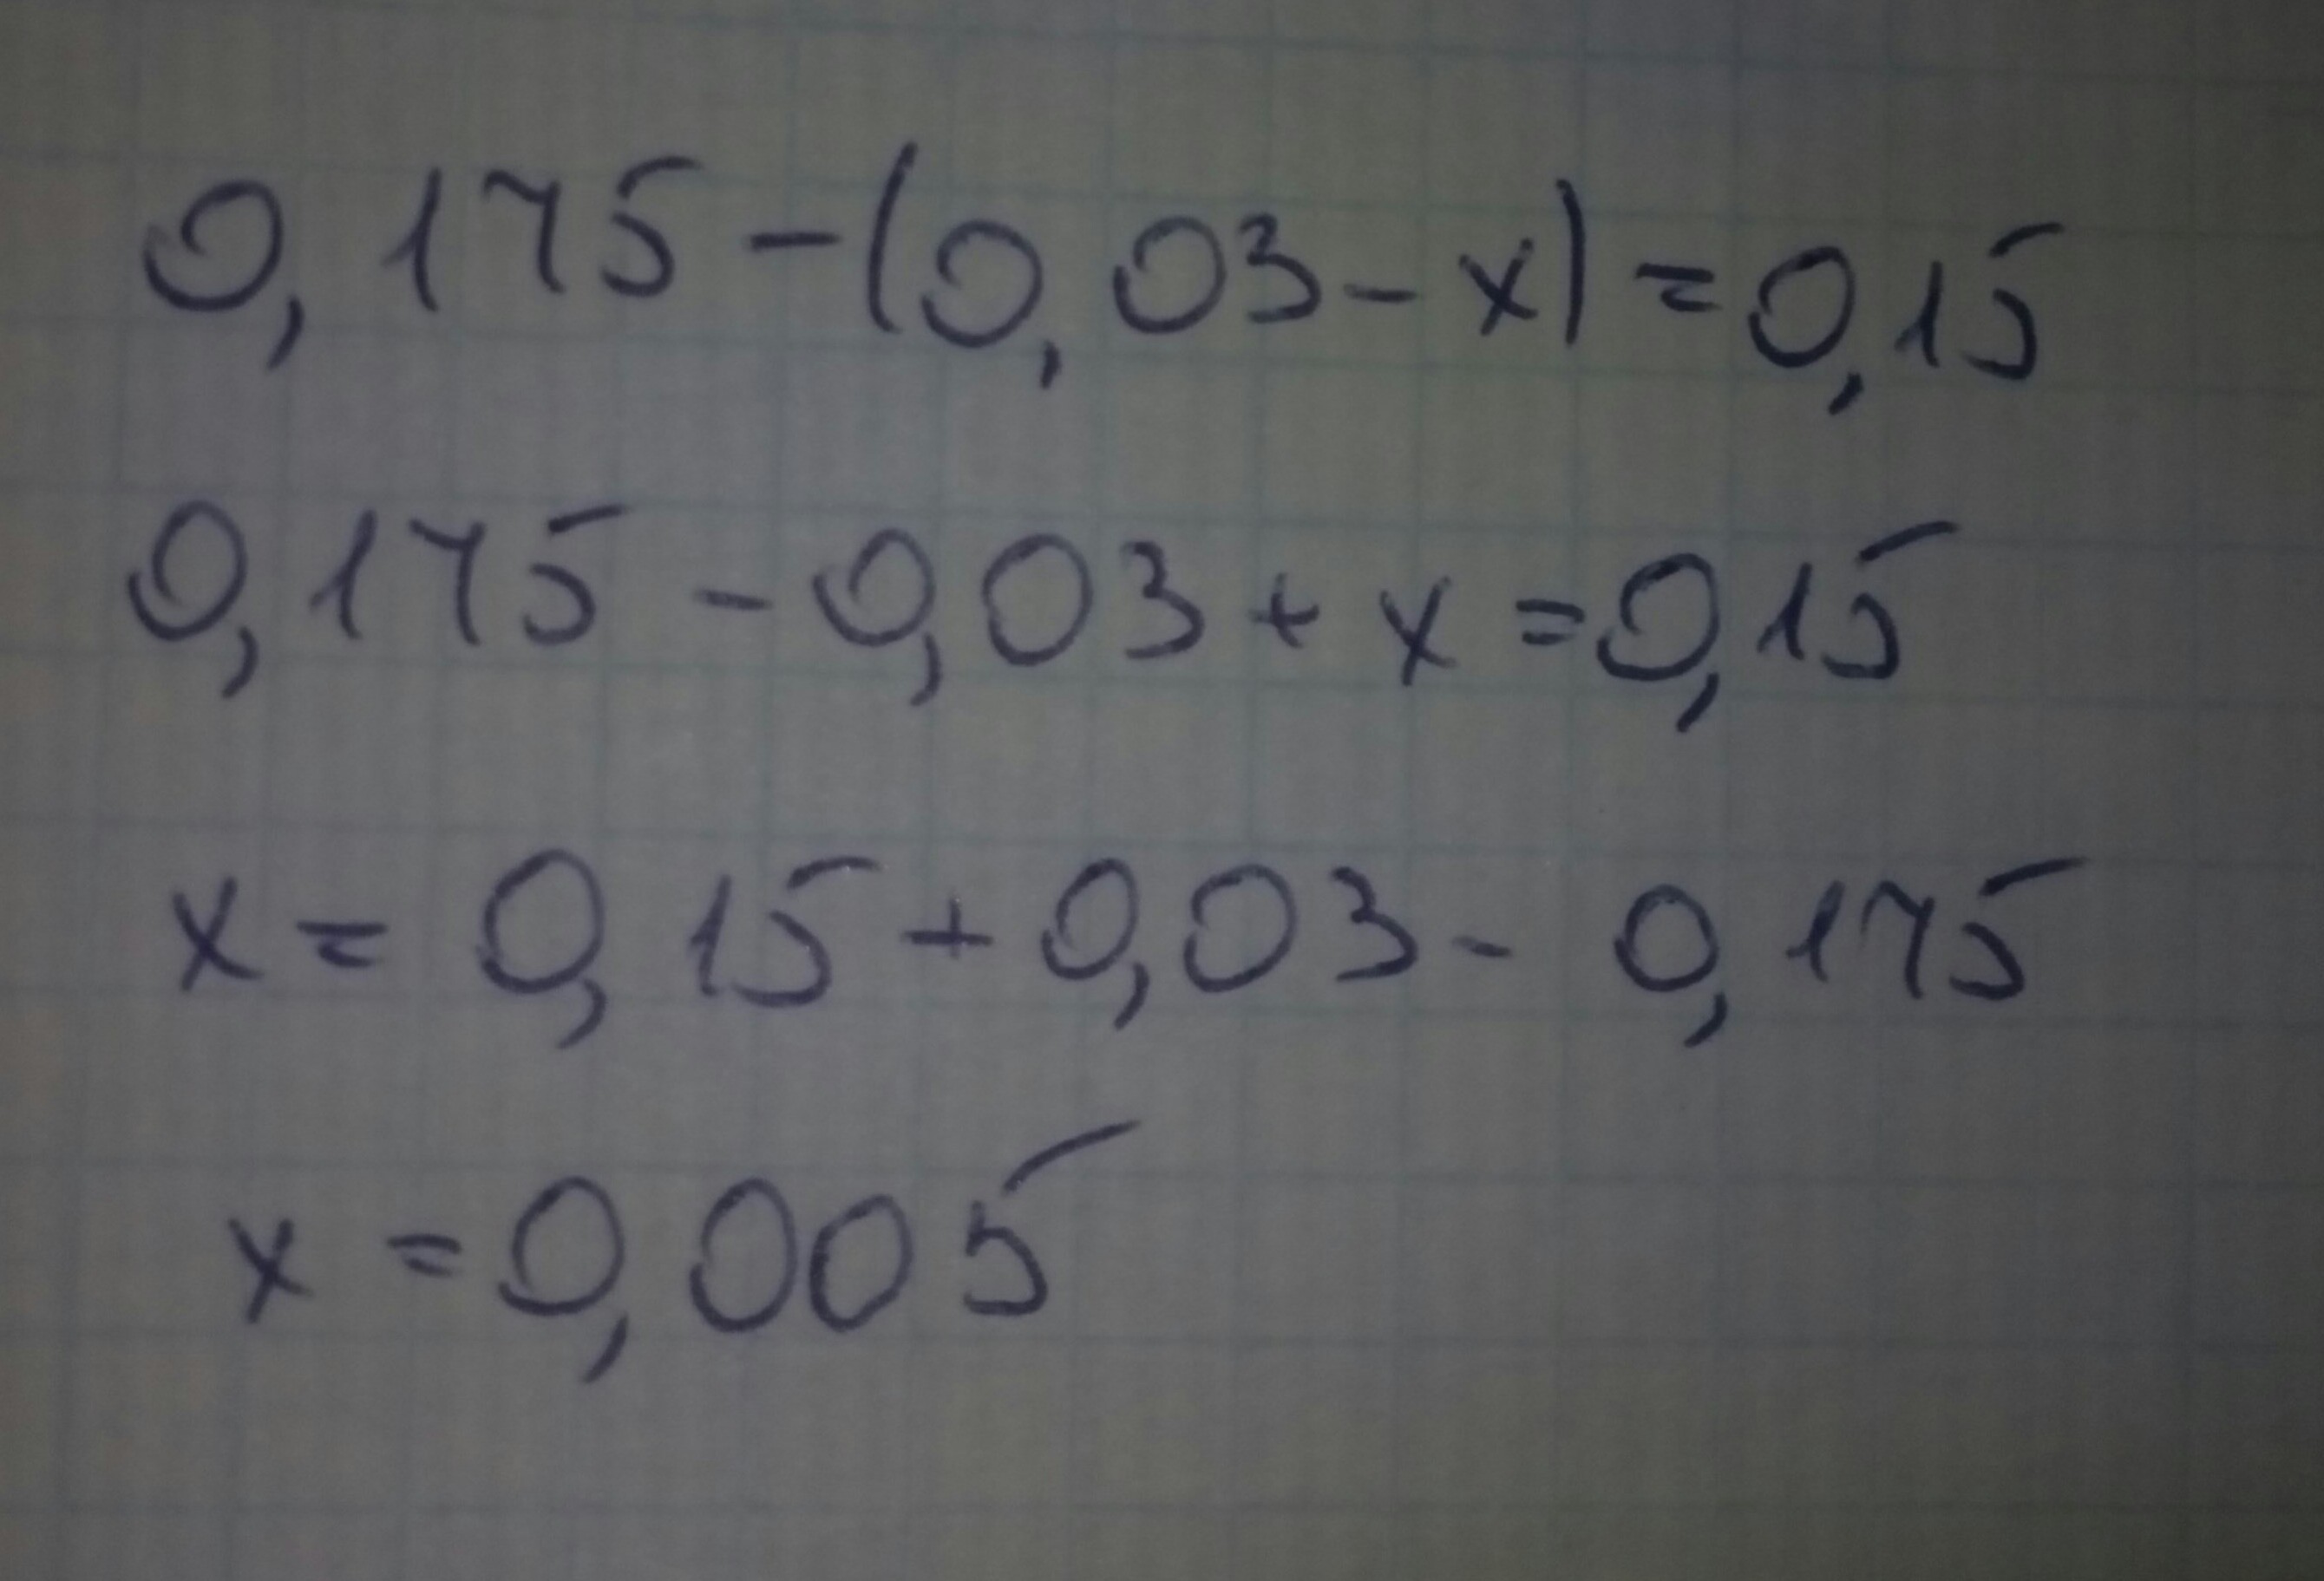 0,175-(0,03-x)=0,15
0,175-0,03+x=0,15
x=0,15+0,03-0,175
x=0,005